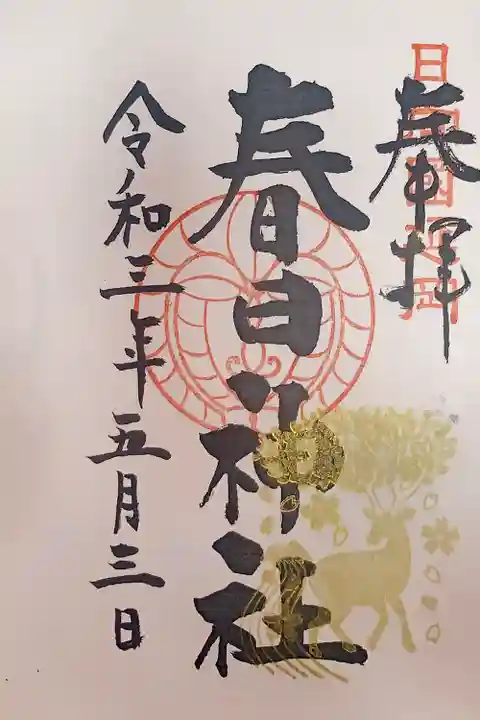 奉拝
春日神社
令和三年五月三日